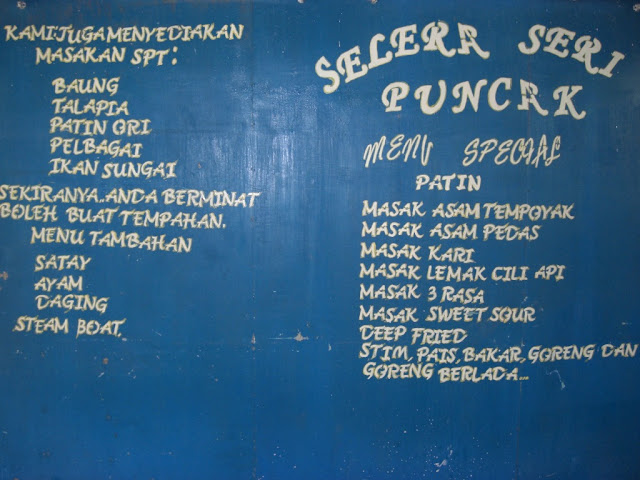 KAMI JUGA MENYEDIAKAN
MASAKAN SPT:
BAUNG
TALAPIA
PATIN ORI
PELBAGAI
IKAN SUNGAI
SEKIRANYA..ANDA BERMINAT
BOLEH BUAT TEMPAHAN.
MENU TAMBAHAN
SATAY
AYAM
DAGING
STEAM BOAT.
SELERA SERI
PUNCAK
MENU SPECIAL
PATIN
MASAK ASAM TEMPOYAK
MASAK ASAM PEDAS
MASAK KARI
MASAK LEMAK CILI API
MASAK 3 RASA
MASAK SWEET SOUR
DEEP FRIED
STIM, PAIS, BAKAR, GORENG DAN
GORENG BERLADA...